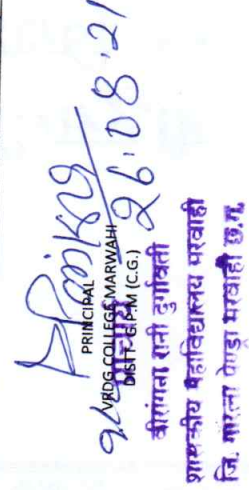 26.08.21
PRINCIPAL
VRDG COLLEGE MARWAHI
DISTT. G.P.M (C.G.)
प्राचार्य
वीरांगना रानी दुर्गावती
शासकीय महाविद्यालय मरवाही
जि. गौरेला पेण्ड्रा मरवाही छ.ग.